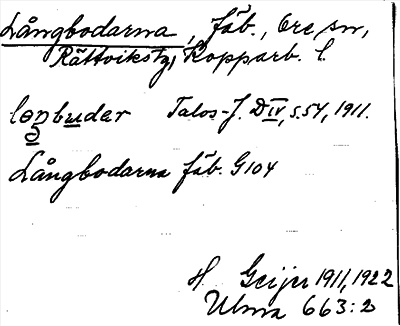 Långbodarna, fäb., Ore sn,
Rättvikstg, Kopparb. l.
lɷŋbuder Talos-J. D IV, s. 54, 1911.
Långbodarna fäb. G 104
H Geijer 1911, 1922
Ulma 663:2